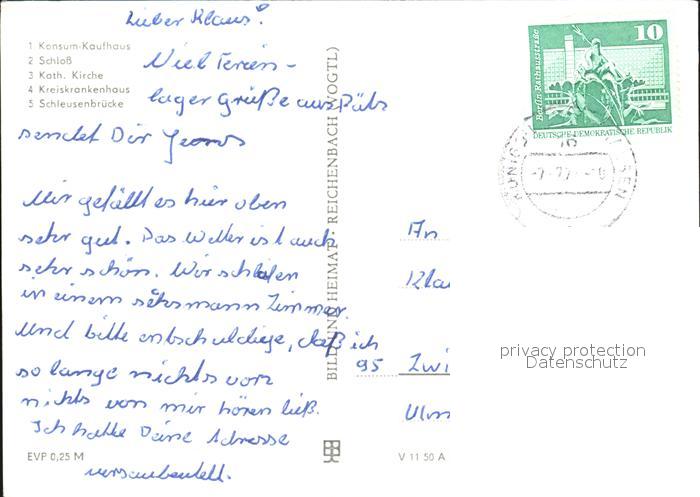 Lieber Klaus!
1 Konsum-Kaufhaus
2 Schloß
3 Kath. Kirche
4 Kreiskrankenhaus
5 Schleusenbrücke
Viel Ferien-
lager Grüße aus
sendet Dir
Mir gefällt es hier oben
sehr gut. Das Wetter ist auch
sehr schön. Wir schlafen
in einem sechsmann Zimmer.
Und bitte entschuldige, daß ich
so lange nichts von
nichts von mir hören ließ.
Ich hatte Deine Adresse
versaubeutelt.
EVP 0,25 M
BILD UND HEIMAT REICHENBACH (VOGTL)
V 11 50 A
10
Berlin, Rathausstraße
DEUTSCHE DEMOKRATISCHE REPUBLIK
An
Kla
95 Zwi
Ulm
privacy protection
Datenschutz